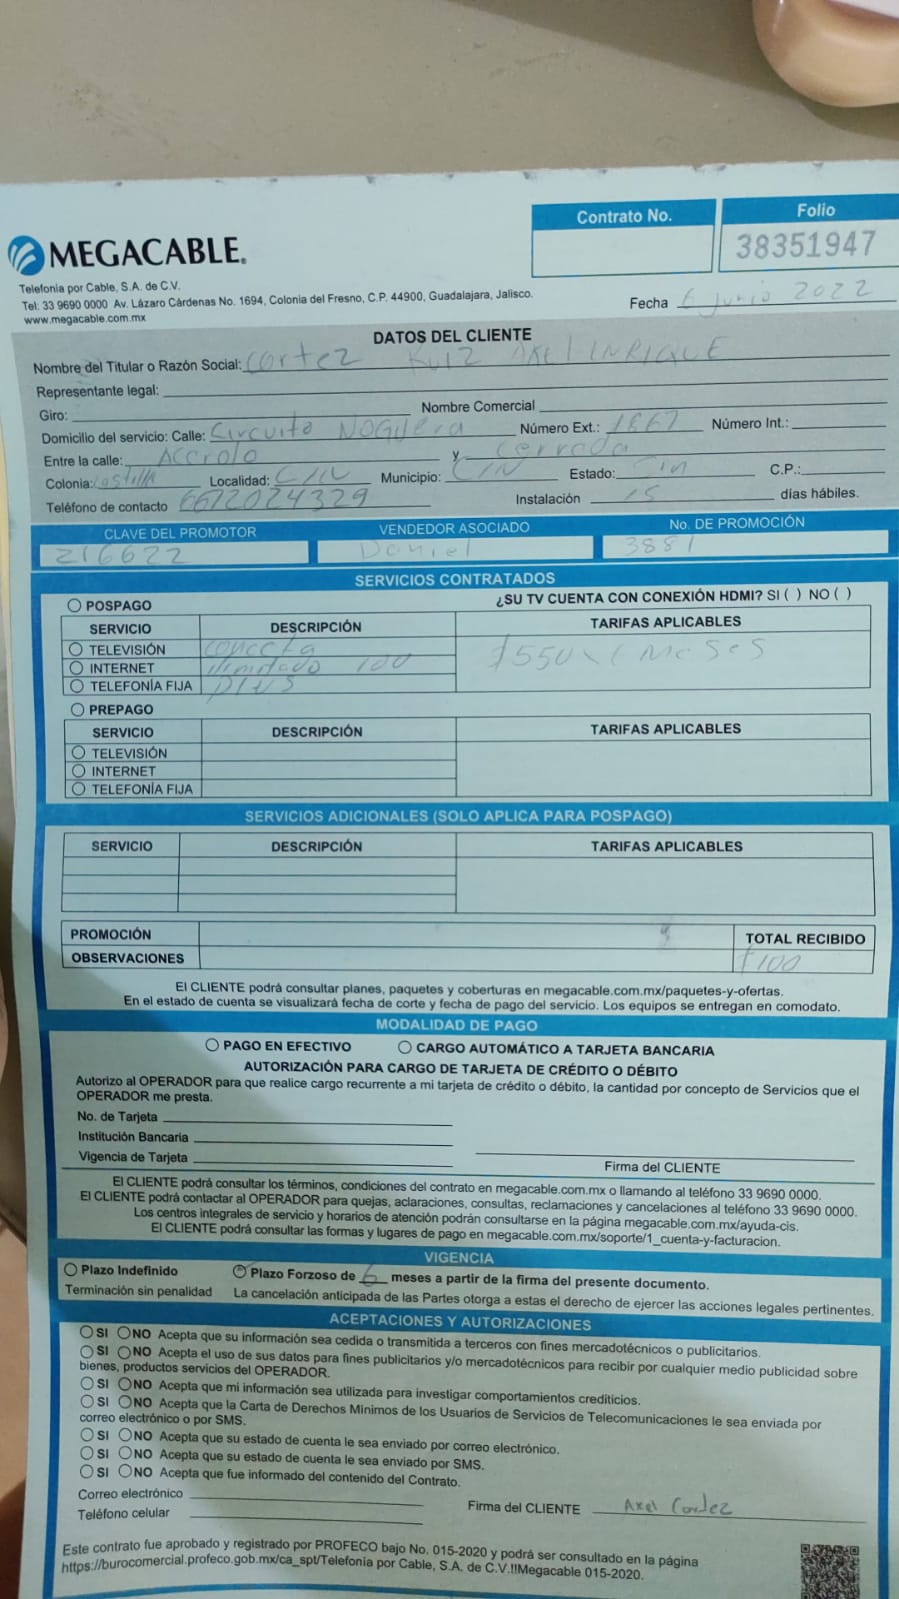 MEGACABLE®
Contrato No.
Folio
38351947
Telefonía por Cable, S.A. de C.V.
Tel: 33 9690 0000 Av. Lázaro Cárdenas No. 1694, Colonia del Fresno, C.P. 44900, Guadalajara, Jalisco.
www.megacable.com.mx
Fecha 6 Junio 2022
DATOS DEL CLIENTE
Nombre del Titular o Razón Social: Cortez Ruiz Axel INRIQUE
Representante legal:
Giro: Nombre Comercial
Domicilio del servicio: Calle: Circuito NOGUERA Número Ext.: 1867 Número Int.:
Entre la calle: Accrolo y Cerrada
Colonia: Castilla Localidad: Municipio: Estado: C.P.:
Teléfono de contacto 6672024329 Instalación 15 días hábiles.
CLAVE DEL PROMOTOR VENDEDOR ASOCIADO No. DE PROMOCIÓN
216622 Daniel 3881
SERVICIOS CONTRATADOS
POSPAGO ¿SU TV CUENTA CON CONEXIÓN HDMI? SI ( ) NO ( )
SERVICIO DESCRIPCIÓN TARIFAS APLICABLES
TELEVISIÓN conecta $550 x Meses
INTERNET ilimitado 100
TELEFONÍA FIJA plus
PREPAGO
SERVICIO DESCRIPCIÓN TARIFAS APLICABLES
TELEVISIÓN
INTERNET
TELEFONÍA FIJA
SERVICIOS ADICIONALES (SOLO APLICA PARA POSPAGO)
SERVICIO DESCRIPCIÓN TARIFAS APLICABLES
PROMOCIÓN TOTAL RECIBIDO
OBSERVACIONES $100
El CLIENTE podrá consultar planes, paquetes y coberturas en megacable.com.mx/paquetes-y-ofertas.
En el estado de cuenta se visualizará fecha de corte y fecha de pago del servicio. Los equipos se entregan en comodato.
MODALIDAD DE PAGO
PAGO EN EFECTIVO CARGO AUTOMÁTICO A TARJETA BANCARIA
AUTORIZACIÓN PARA CARGO DE TARJETA DE CRÉDITO O DÉBITO
Autorizo al OPERADOR para que realice cargo recurrente a mi tarjeta de crédito o débito, la cantidad por concepto de Servicios que el
OPERADOR me presta.
No. de Tarjeta
Institución Bancaria
Vigencia de Tarjeta
Firma del CLIENTE
El CLIENTE podrá consultar los términos, condiciones del contrato en megacable.com.mx o llamando al teléfono 33 9690 0000.
El CLIENTE podrá contactar al OPERADOR para quejas, aclaraciones, consultas, reclamaciones y cancelaciones al teléfono 33 9690 0000.
Los centros integrales de servicio y horarios de atención podrán consultarse en la página megacable.com.mx/ayuda-cis.
El CLIENTE podrá consultar las formas y lugares de pago en megacable.com.mx/soporte/1_cuenta-y-facturacion.
VIGENCIA
Plazo Indefinido Plazo Forzoso de 6 meses a partir de la firma del presente documento.
Terminación sin penalidad La cancelación anticipada de las Partes otorga a estas el derecho de ejercer las acciones legales pertinentes.
ACEPTACIONES Y AUTORIZACIONES
SI NO Acepta que su información sea cedida o transmitida a terceros con fines mercadotécnicos o publicitarios.
SI NO Acepta el uso de sus datos para fines publicitarios y/o mercadotécnicos para recibir por cualquier medio publicidad sobre
bienes, productos servicios del OPERADOR.
SI NO Acepta que mi información sea utilizada para investigar comportamientos crediticios.
SI NO Acepta que la Carta de Derechos Mínimos de los Usuarios de Servicios de Telecomunicaciones le sea enviada por
correo electrónico o por SMS.
SI NO Acepta que su estado de cuenta le sea enviado por correo electrónico.
SI NO Acepta que su estado de cuenta le sea enviado por SMS.
SI NO Acepta que fue informado del contenido del Contrato.
Correo electrónico
Teléfono celular
Firma del CLIENTE Axel Cortez
Este contrato fue aprobado y registrado por PROFECO bajo No. 015-2020 y podrá ser consultado en la página
https://burocomercial.profeco.gob.mx/ca_spt/Telefonía por Cable, S.A. de C.V.!!Megacable 015-2020.